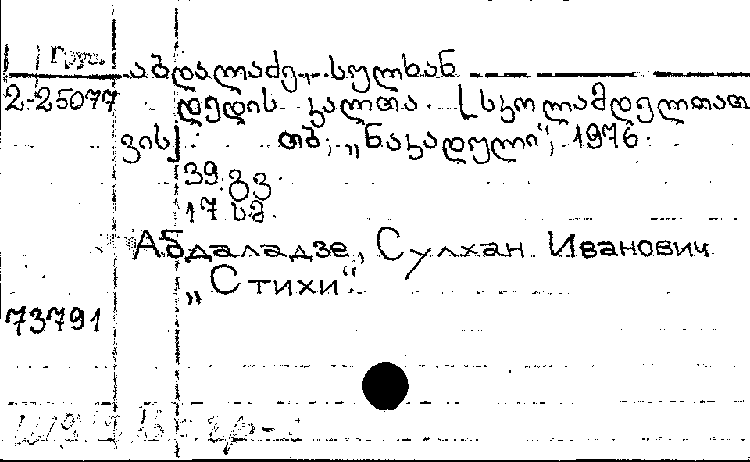 Груз.
აბდალაძე, სულხან
2-25077 დედის კალთა. [სკოლამდელთათ
ვის]. თბ., „ნაკადული“, 1976.
39 გვ.
17 სმ.
Абдаладзе, Сулхан Иванович
„Стихи“.
73791